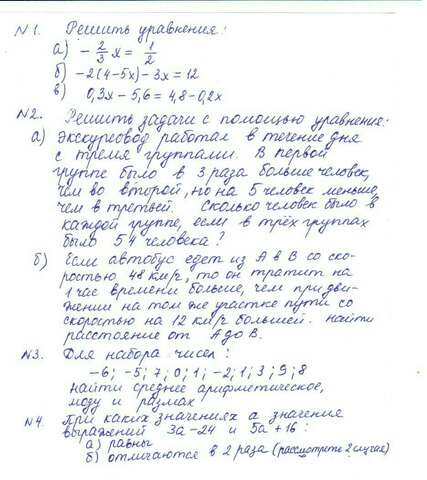 №1. Решить уравнения:
а) - 2/3 x = 1/2
б) -2(4-5x) - 3x = 12
в) 0,3x - 5,6 = 4,8 - 0,2x
№2. Решить задачи с помощью уравнения:
а) Экскурсовод работал в течение дня
с тремя группами. В первой
группе было в 3 раза больше человек,
чем во второй, но на 5 человек меньше,
чем в третьей. Сколько человек было в
каждой группе, если в трёх группах
было 54 человека?
б) Если автобус едет из А в В со ско-
ростью 48 км/ч, то он тратит на
1 час времени больше, чем при дви-
жении на том же участке пути со
скоростью на 12 км/ч большей. Найти
расстояние от А до В.
№3. Для набора чисел:
-6; -5; 7; 0; 1; -2; 1; 3; 9; 8
найти среднее арифметическое,
моду и размах
№4. При каких значениях а значения
выражений 3а-24 и 5а+16:
а) равны
б) отличаются в 2 раза (рассмотрете 2 случая)